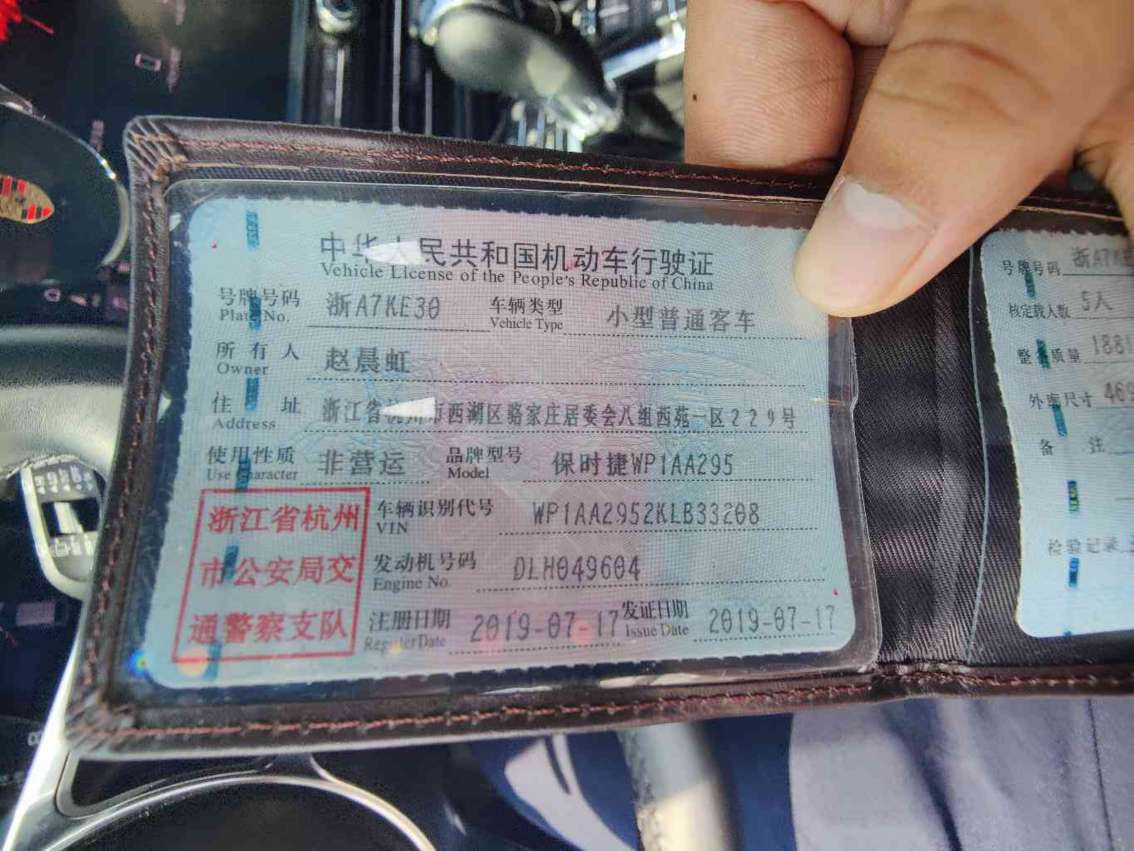 中华人民共和国机动车行驶证
Vehicle License of the People's Republic of China
号牌号码 浙A7KE30 车辆类型 小型普通客车
Plate No. Vehicle Type
所有人 赵晨虹
Owner
住址 浙江省杭州市西湖区骆家庄居委会八组西苑一区229号
Address
使用性质 非营运 品牌型号 保时捷WP1AA295
Use Character Model
浙江省杭州
市公安局交
通警察支队
车辆识别代号 WP1AA2952KLB33208
VIN
发动机号码 DLH049604
Engine No.
注册日期 2019-07-17 发证日期 2019-07-17
Register Date Issue Date
号牌号码 浙A7KE
核定载人数 5人
整备质量 1881
外廓尺寸 469
备注
检验记录